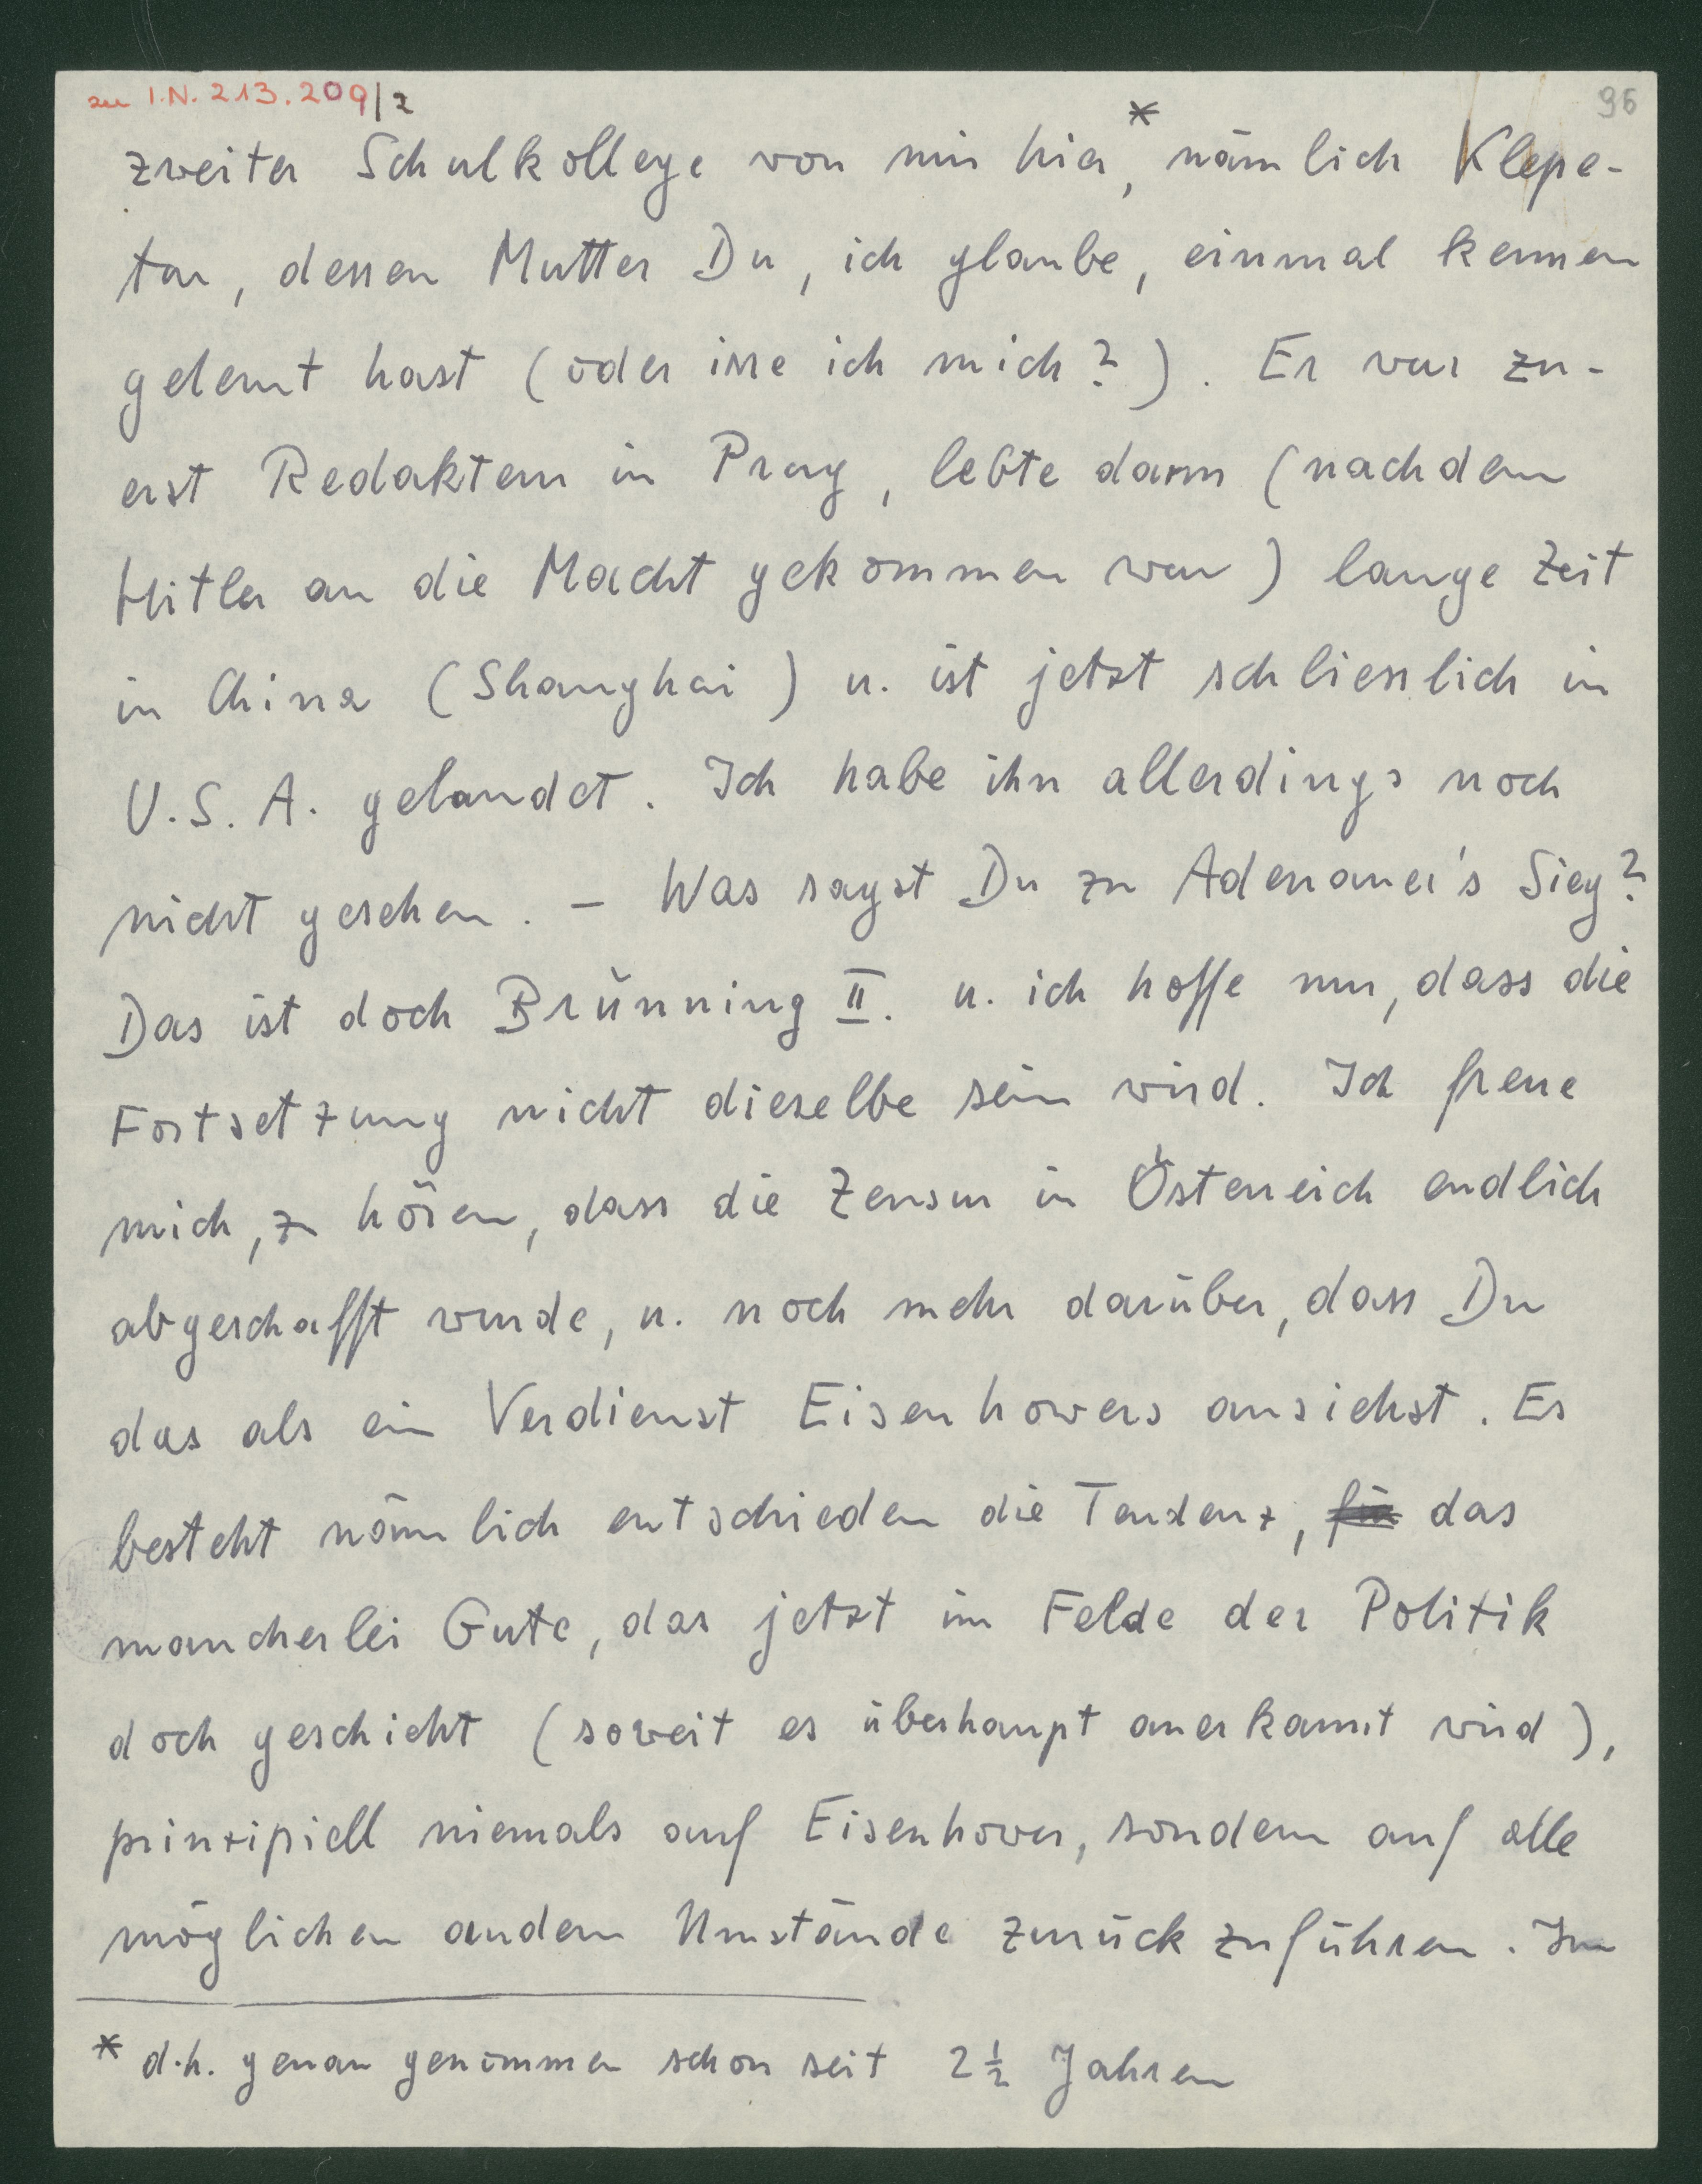 zu I.N. 213.209/2
96
zweiter Schulkollege von mir hier,* nämlich Klepe-
tar, dessen Mutter Du, ich glaube, einmal kennen
gelernt hast (oder irre ich mich?). Er war zu-
erst Redakteur in Prag, lebte dann (nachdem
Hitler an die Macht gekommen war) lange Zeit
in China (Shanghai) u. ist jetzt schliesslich in
U.S.A. gelandet. Ich habe ihn allerdings noch
nicht gesehen. – Was sagst Du zu Adenauer's Sieg?
Das ist doch Brünning II. u. ich hoffe nur, dass die
Fortsetzung nicht dieselbe sein wird. Ich freue
mich, zu hören, dass die Zensur in Österreich endlich
abgeschafft wurde, u. noch mehr darüber, dass Du
das als ein Verdienst Eisenhowers ansiehst. Es
besteht nämlich entschieden die Tendenz, für das
mancherlei Gute, das jetzt im Felde der Politik
doch geschieht (soweit es überhaupt anerkannt wird),
prinzipiell niemals auf Eisenhower, sondern auf alle
möglichen andern Umstände zurückzuführen. Im
* d.h. genau genommen schon seit 2½ Jahren